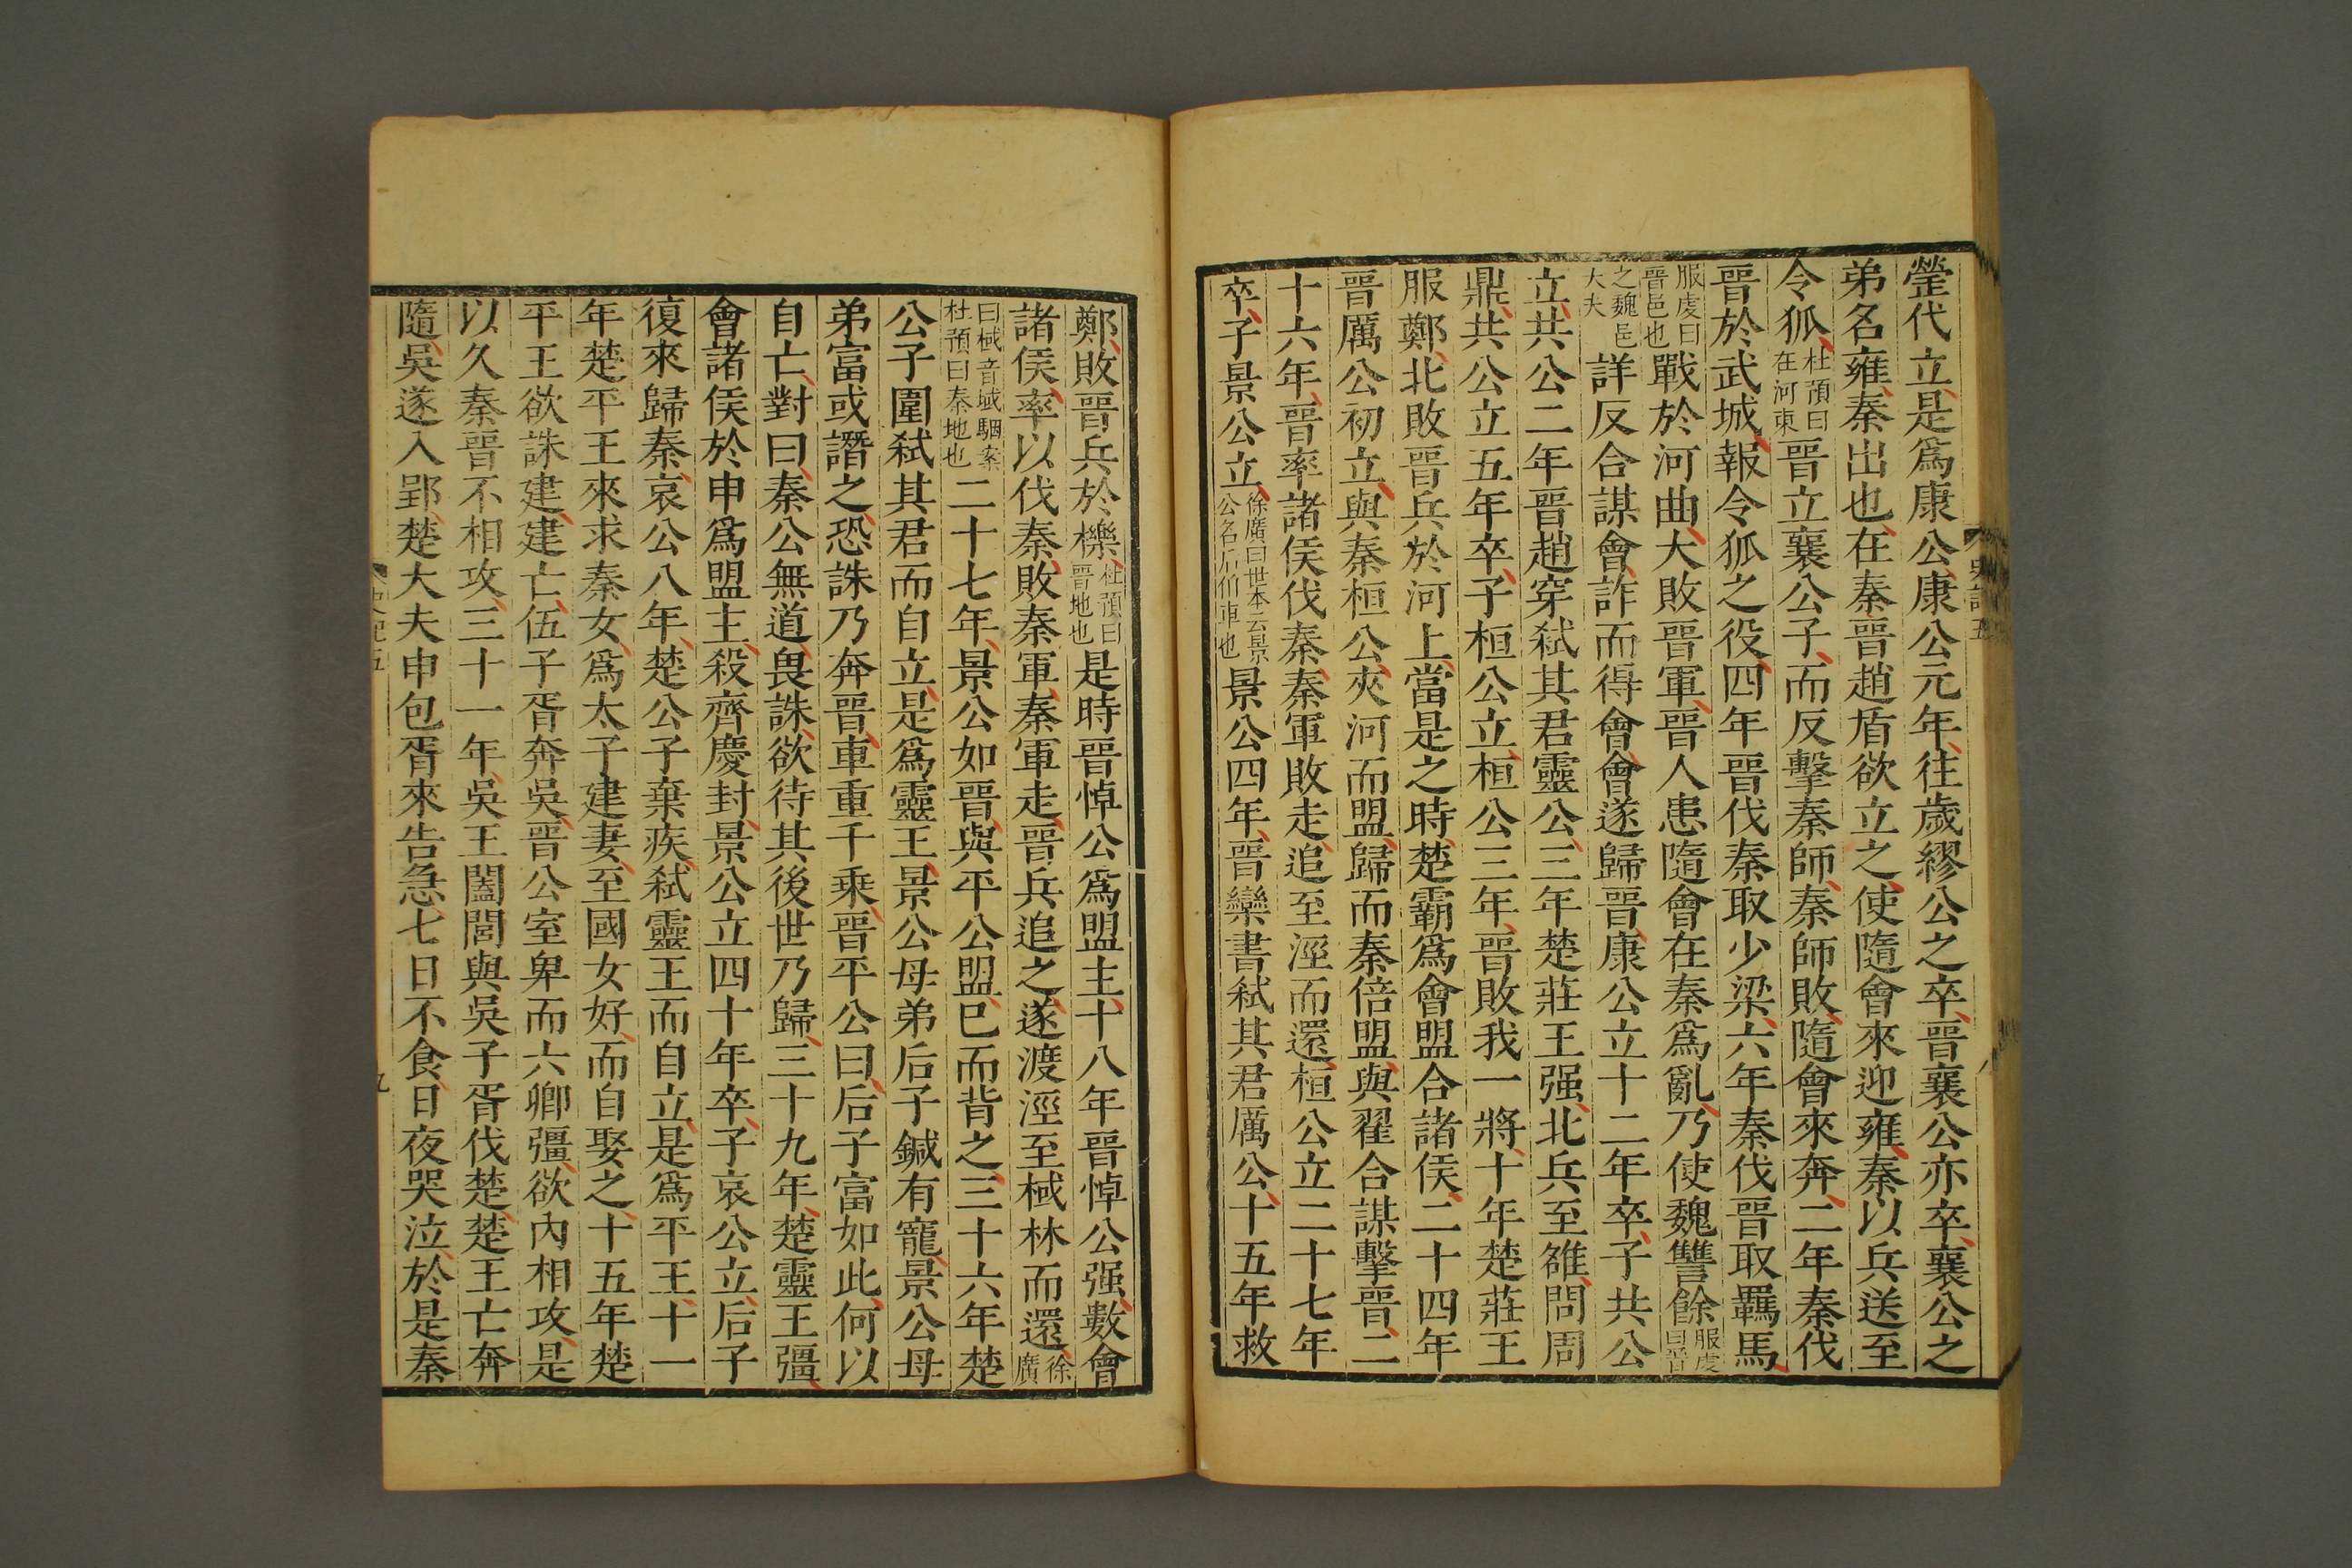 罃代立是爲康公康公元年往歲繆公之卒晉襄公亦卒襄公之
弟名雍秦出也在秦晉趙盾欲立之使隨會來迎雍秦以兵送至
令狐杜預曰在河東晉立襄公子而反擊秦師秦師敗隨會來奔二年秦伐
晉於武城報令狐之役四年晉伐秦取少梁六年秦伐晉取羈馬
服虔曰晉邑也戰於河曲大敗晉軍晉人患隨會在秦爲亂乃使魏讐餘服虔曰晉
之魏邑大夫詳反合謀會詐而得會會遂歸晉康公立十二年卒子共公
立共公二年晉趙穿弑其君靈公三年楚莊王强北兵至雒問周
鼎共公立五年卒子桓公立桓公三年晉敗我一將十年楚莊王
服鄭北敗晉兵於河上當是之時楚霸爲會盟合諸侯二十四年
晉厲公初立與秦桓公夾河而盟歸而秦倍盟與翟合謀擊晉二
十六年晉率諸侯伐秦秦軍敗走追至涇而還桓公立二十七年
卒子景公立徐廣曰世本云景公名后伯車也景公四年晉欒書弑其君厲公十五年救
鄭敗晉兵於櫟杜預曰晉地也是時晉悼公爲盟主十八年晉悼公强數會
諸侯率以伐秦敗秦軍秦軍走晉兵追之遂渡涇至棫林而還徐廣
曰棫音域駰案杜預曰秦地也二十七年景公如晉與平公盟已而背之三十六年楚
公子圍弑其君而自立是爲靈王景公母弟后子鍼有寵景公母
弟富或譖之恐誅乃奔晉車重千乘晉平公曰后子富如此何以
自亡對曰秦公無道畏誅欲待其後世乃歸三十九年楚靈王彊
會諸侯於申爲盟主殺齊慶封景公立四十年卒子哀公立后子
復來歸秦哀公八年楚公子棄疾弑靈王而自立是爲平王十一
年楚平王來求秦女爲太子建妻至國女好而自娶之十五年楚
平王欲誅建建亡伍子胥奔吳晉公室卑而六卿彊欲內相攻是
以久秦晉不相攻三十一年吳王闔閭與吳子胥伐楚楚王亡奔
隨吳遂入郢楚大夫申包胥來告急七日不食日夜哭泣於是秦
史記五
九